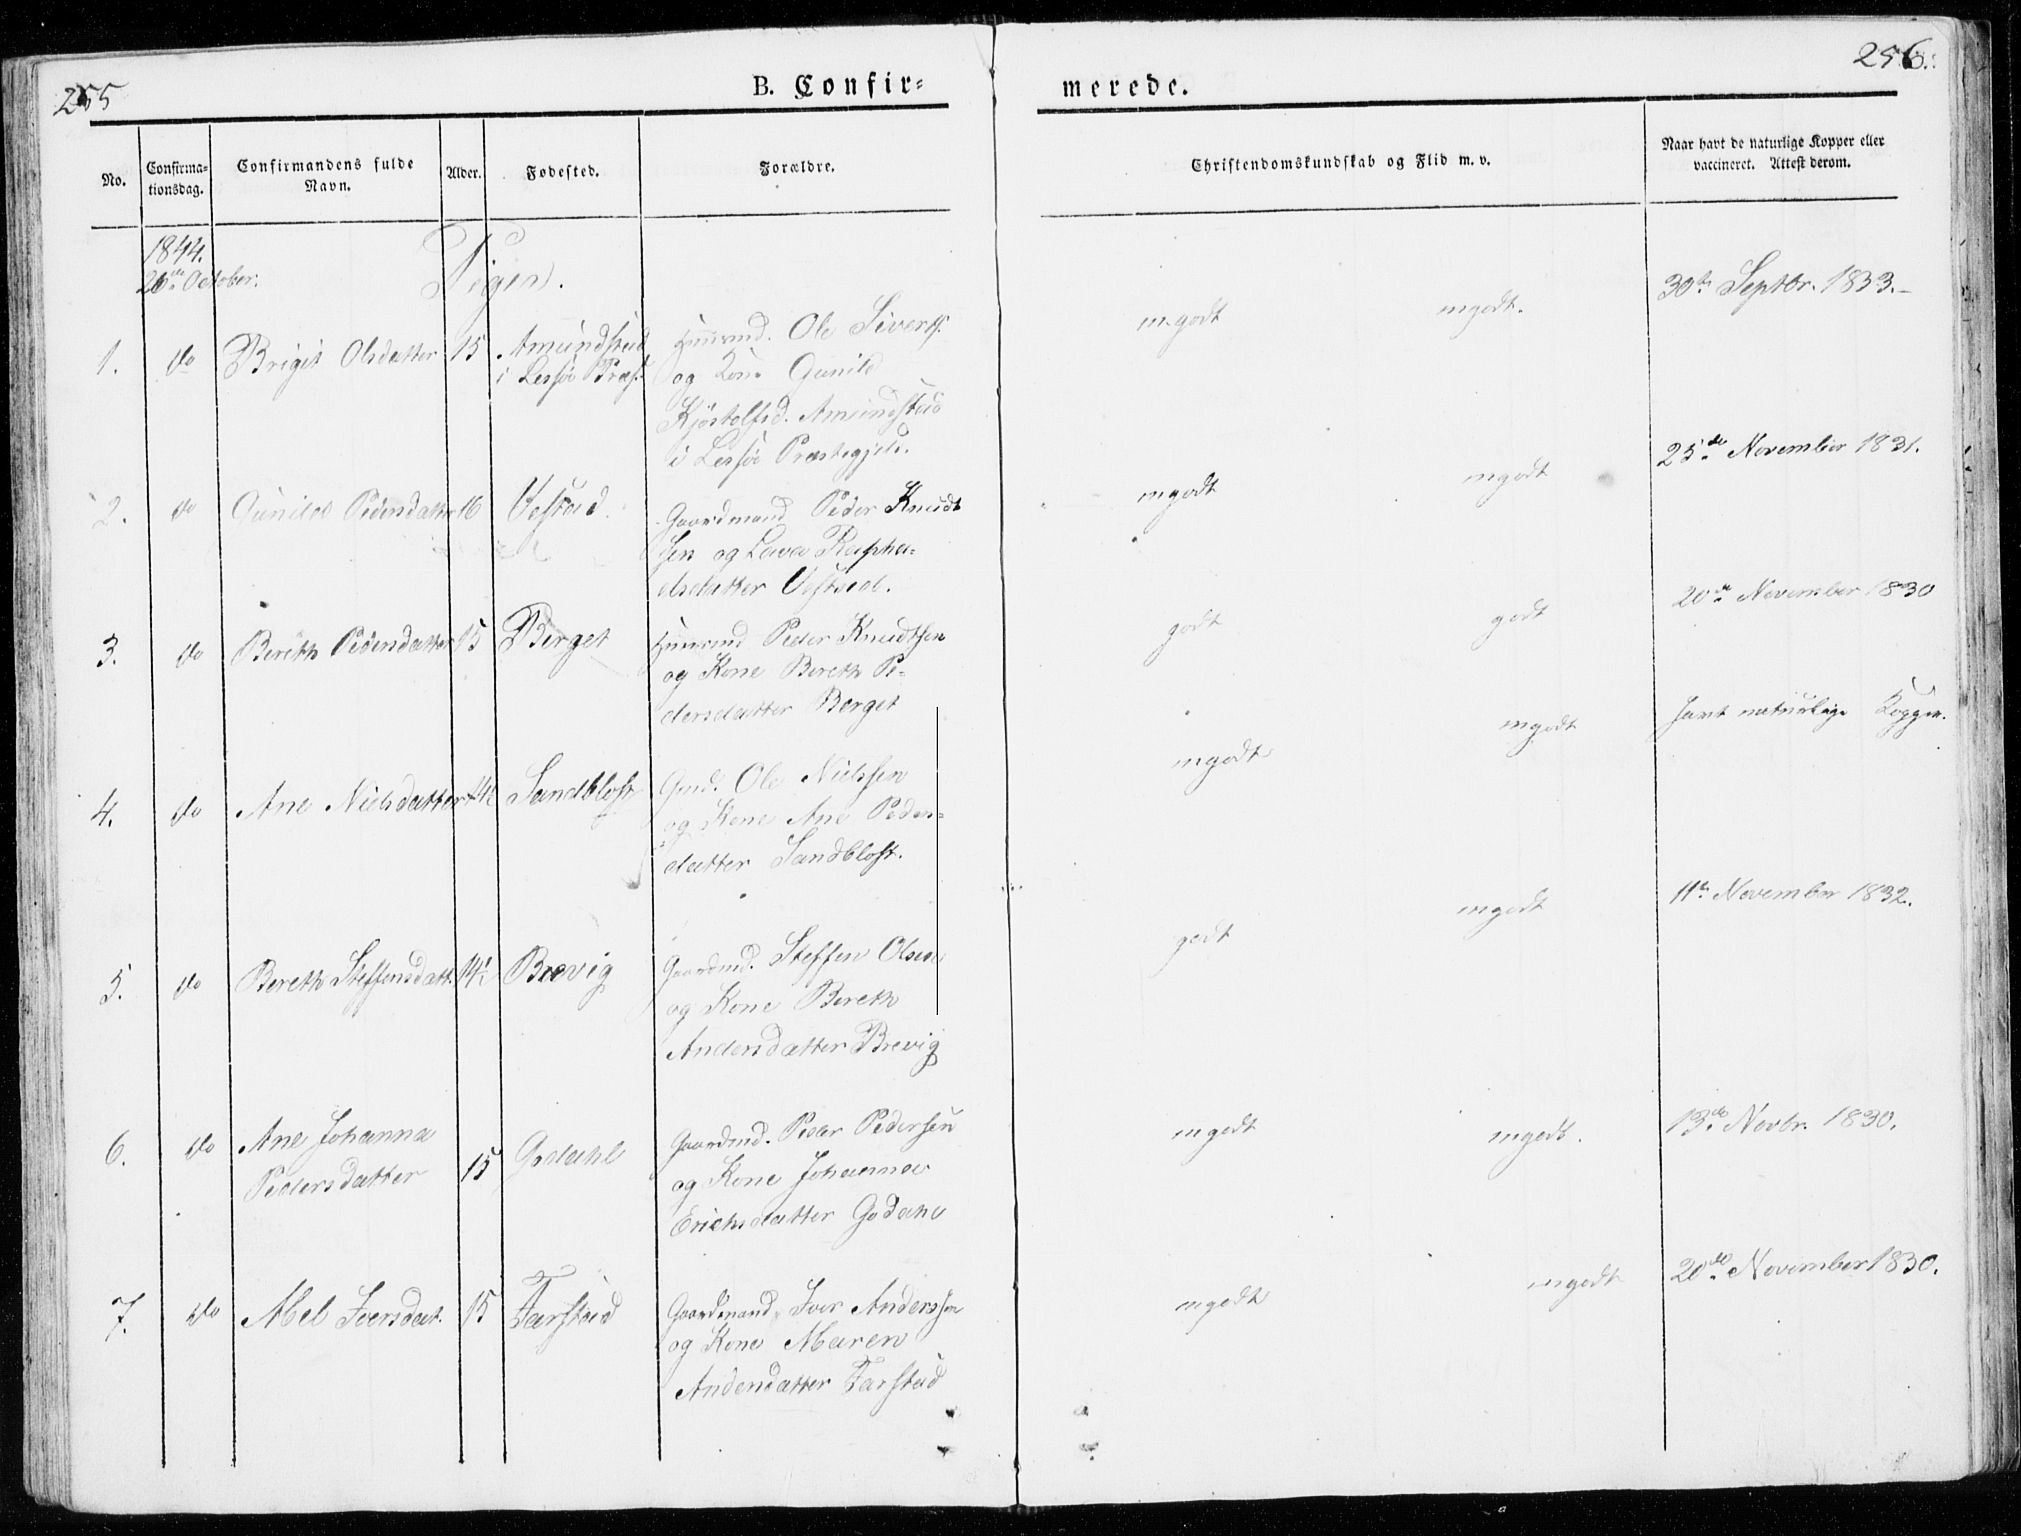 255
256.
B. Confir=
merede.
No.
Confirma-
tionsdag.
Confirmandens fulde
Navn.
Alder.
Fødested.
Forældre.
Christendomskundskab og Flid m. v.
Naar havt de naturlige Kopper eller
vaccineret. Attest derom.
1844.
20de October.
Piger.
1. do Brigit Olsdatter 15 Amundstad
i Lessøe Præst
Huusmd. Ole Siverts.
og Kone Gunild
Amundstad
i Lessøe Præstegjeld.
mgodt mgodt. 30te Septbr. 1833.
2. do Gunild Pedersdatter 16 Ustad
Gaardmand Peder Knudt
sen og Rapha=
elsdatter Ustad.
mgodt mgodt 25de November 1831.
3. do Bereth Pedersdatter 15 Berget
Huusmd Peder Knudtsen
og Kone Bereth Pe=
dersdatter Berget
godt godt 20de November 1830
4. do Ane Nielsdatter 14½ Sandblost
Gmd. Ole Nielssen
og Kone Ane Peders=
datter Sandblost.
mgodt mgodt havt naturlige Kopper.
5. do Bereth Steffensdatt. 14½ Brevig
Gaardmd. Steffen Olsen
og Kone Bereth
Andersdatter Brevig
godt mgodt 11te November 1832.
6. do Ane Johanna
Pedersdatter
15 Godahl
Gaardmd. Peder Pedersen
og Kone Johanna
Erichsdatter Godahl
mgodt mgodt. 13de Novbr. 1830.
7. do Abel Iversdat. 15 Tarstad
Gaardmand Iver Anderssen
og Kone Maren
Andersdatter Tarstad
mgodt mgodt 20de November 1830.